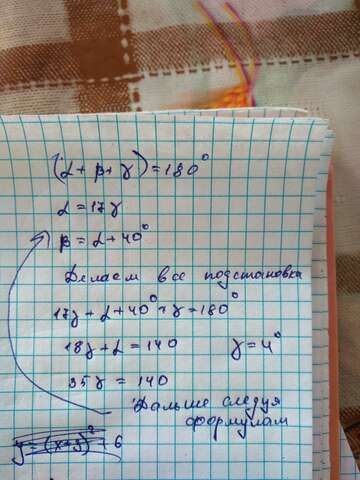 (α + β + γ) = 180°
α = 17γ
β = α + 40°
Делаем все подстановка
17γ + α + 40° + γ = 180°
18γ + α = 140 γ = 4°
35γ = 140
Дальше следуя
формулам
y = (x+5)² + 6